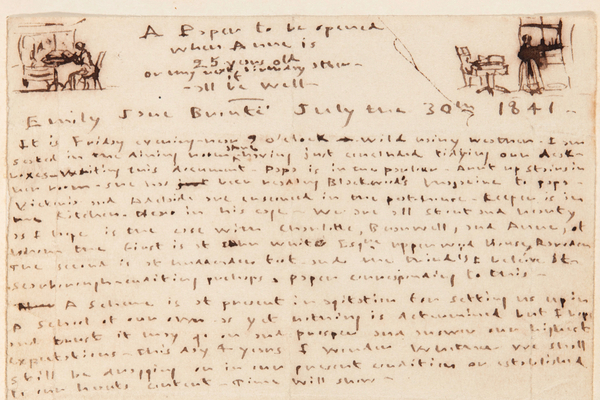 A Paper to be opened
when Anne is
25 years old
or my next birthday after—
if
—all be well—
Emily Jane Brontë July the 30th 1841.
It is Friday evening—near 9 o'clock—wild rainy weather. I am
seated in the dining room alone having just concluded tidying our desk-
boxes—writing this document—Papa is in the parlour. Aunt up stairs in
her room—she has just been reading Blackwood's Magazine to papa—
Victoria and Adelaide are ensconced in the peat-house—Keeper is in
the kitchen—Hero in his cage—We are all stout and hearty
as I hope is the case with Charlotte, Branwell, and Anne, of
whom the first is at John White Esqre upperwood House, Rawden
The second is at Luddenden foot and the third is I believe at
Scarborough—editing perhaps a paper corresponding to this—
A Scheme is at present in agitation for setting us up in
A School of our own as yet nothing is determined but I hope
and trust it may go on and prosper and answer our highest
expectations—This day 4-years I wonder whether we shall
still be dragging on in our present condition or established
to our heart's content—Time will show—